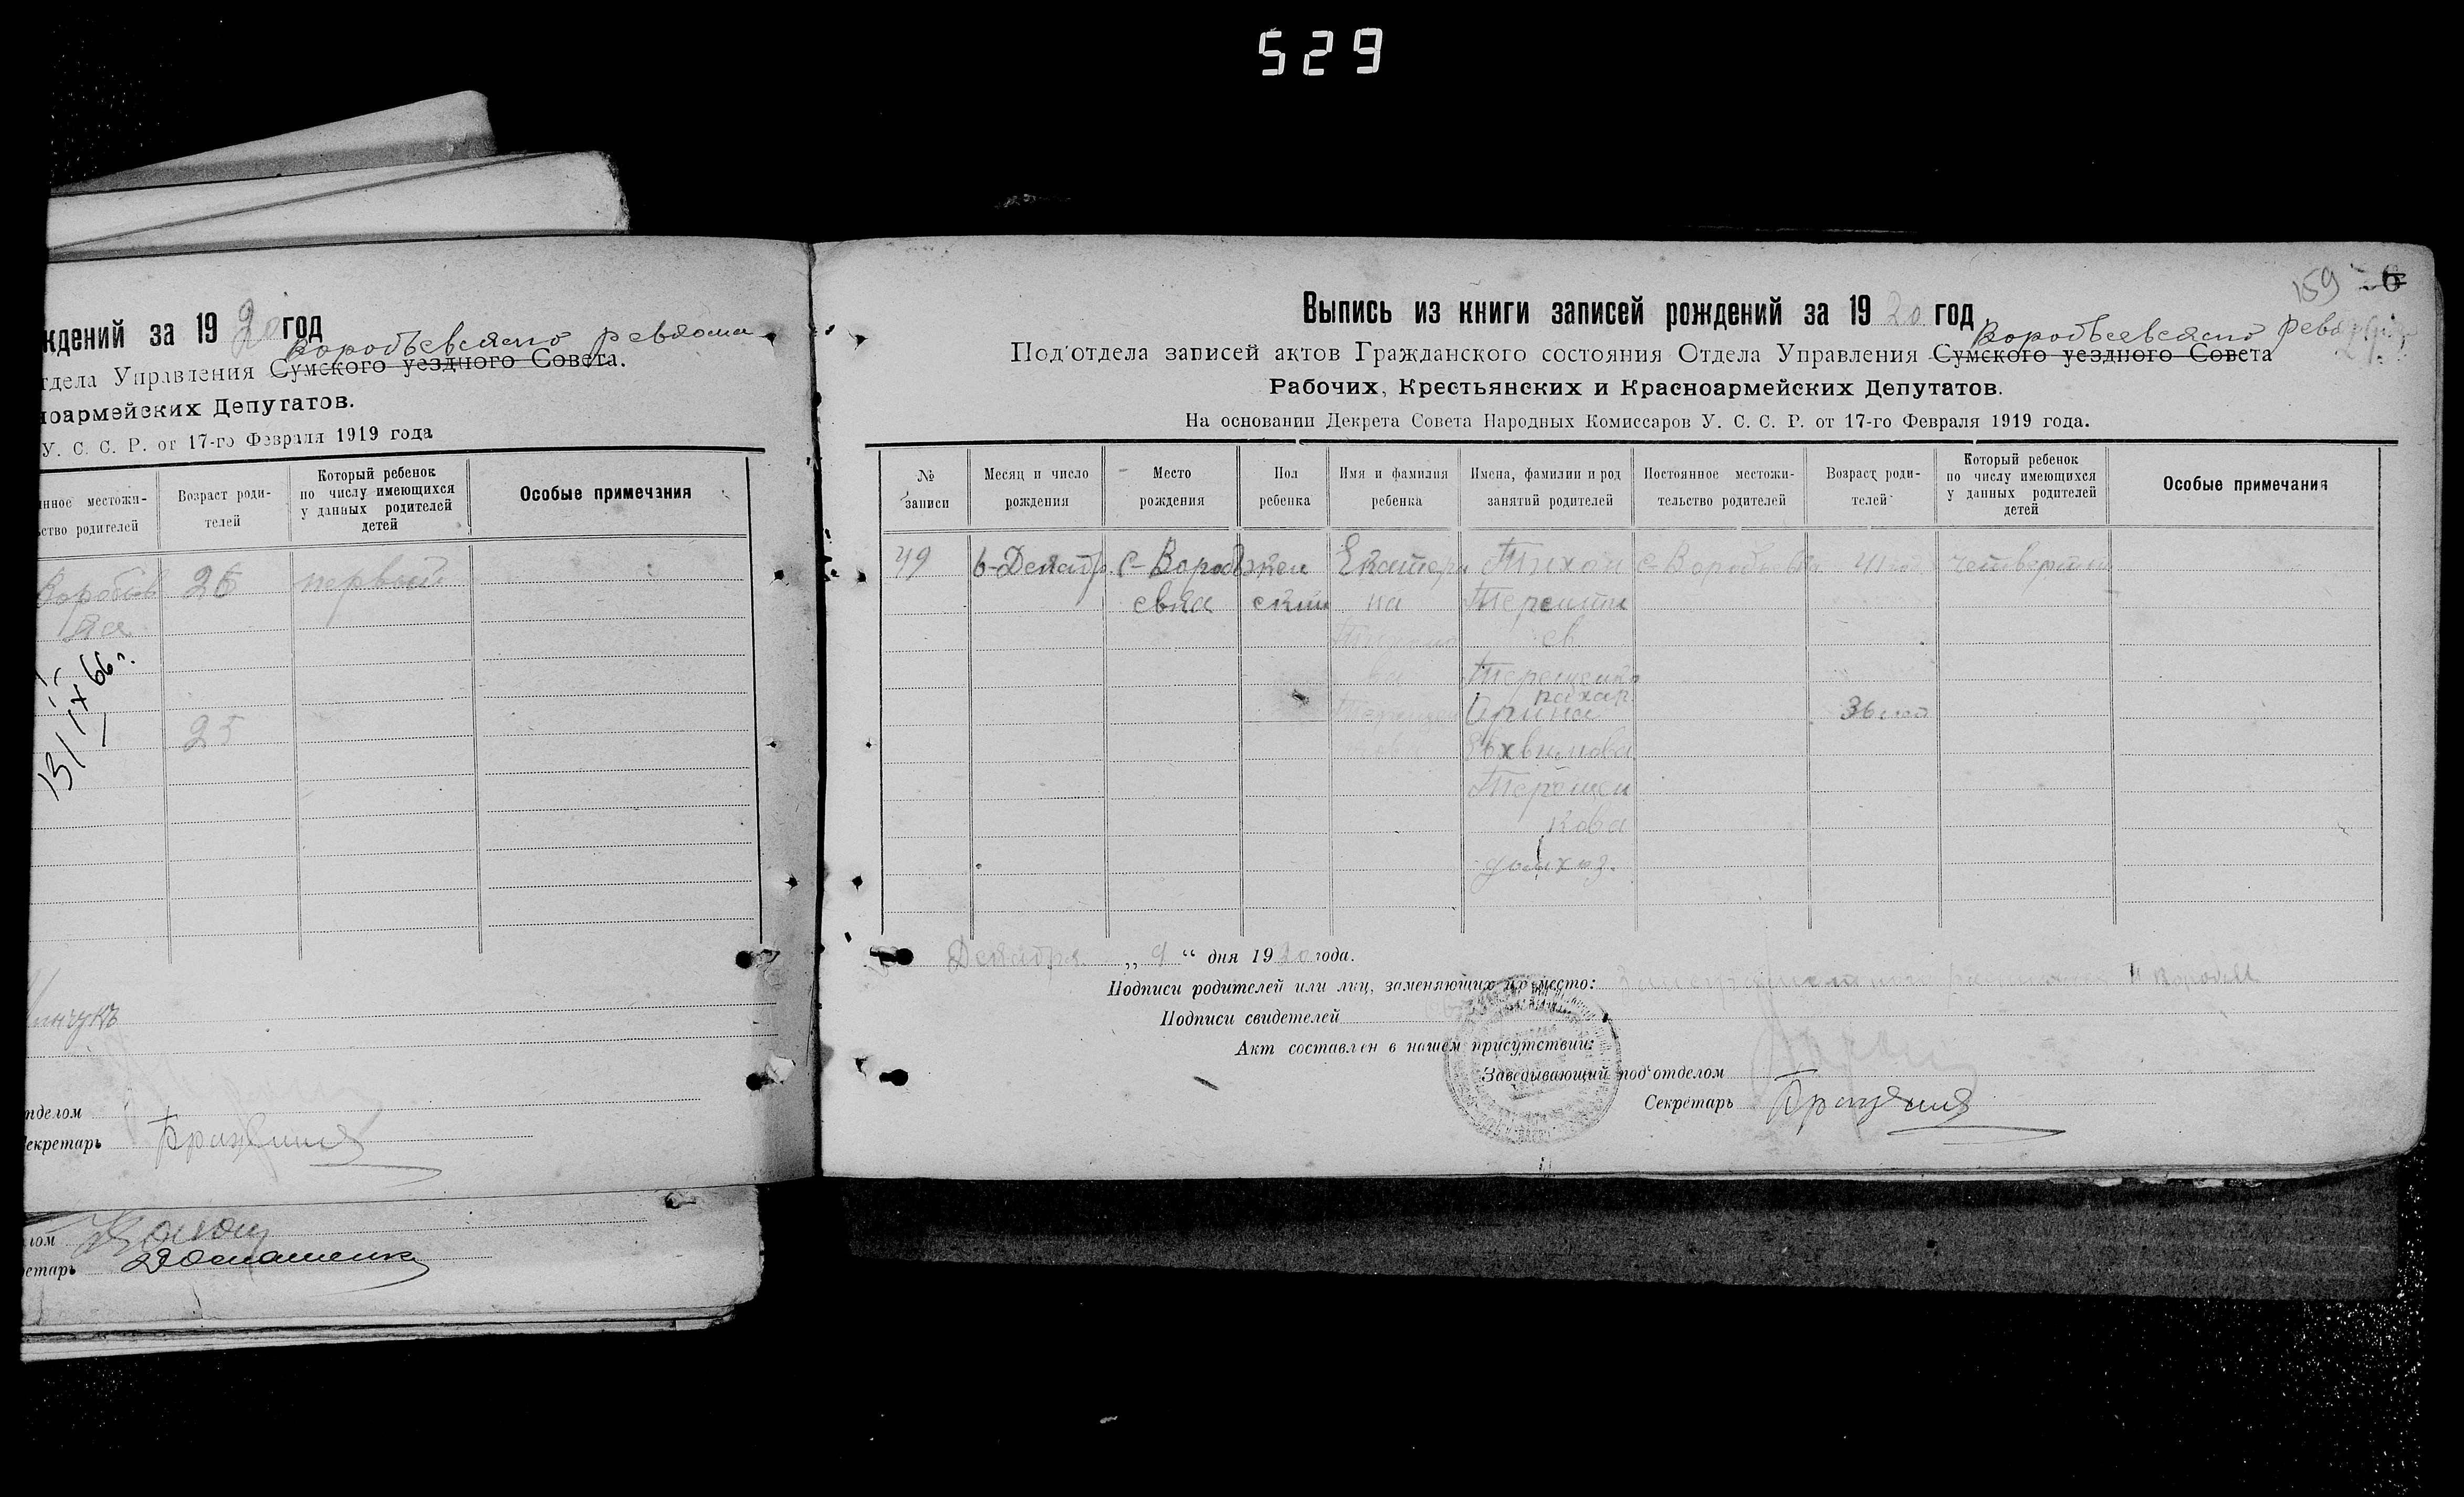 529
ждений за 19 20 год
Воробьевского ревкома
тдела Управления Сумского уездного Совета.
ноармейских Депутатов.
У. С. С. Р. от 17-го Февраля 1919 года
нное местожи-
ство родителей
Возраст роди-
телей
Который ребенок
по числу имеющихся
у данных родителей
детей
Особые примечания
Воробьев 26 первый
ка
13/IX 66 г.
25
инчукъ
тделом
Секретарь
лом
ретарь Домашенко
159 6
Выпись из книги записей рождений за 19 20 год
Воробьевского
Под'отдела записей актов Гражданского состояния Отдела Управления Сумского уездного Совета
Рабочих, Крестьянских и Красноармейских Депутатов.
На основании Декрета Совета Народных Комиссаров У. С. С. Р. от 17-го Февраля 1919 года.
№
записи
Месяц и число
рождения
Место
рождения
Пол
ребенка
Имя и фамилия
ребенка
Имена, фамилии и род
занятий родителей
Постоянное местожи-
тельство родителей
Возраст роди-
телей
Который ребенок
по числу имеющихся
у данных родителей
детей
Особые примечания
49 6-Декабр с-Вороб жен Екатери Тихон с-Воробьевка 41 год четвертый
евка ский на Теренти
Тихоно ев
ва Терещенко
пахар
Терещен Арина 36 лет
кова Ехвимова
Терещен
кова
домхоз.
Декабря „ 9 “ дня 1920 года.
Подписи родителей или лиц, заменяющих их место:
Подписи свидетелей
Акт составлен в нашем присутствии:
Заведывающий под'отделом
Секретарь